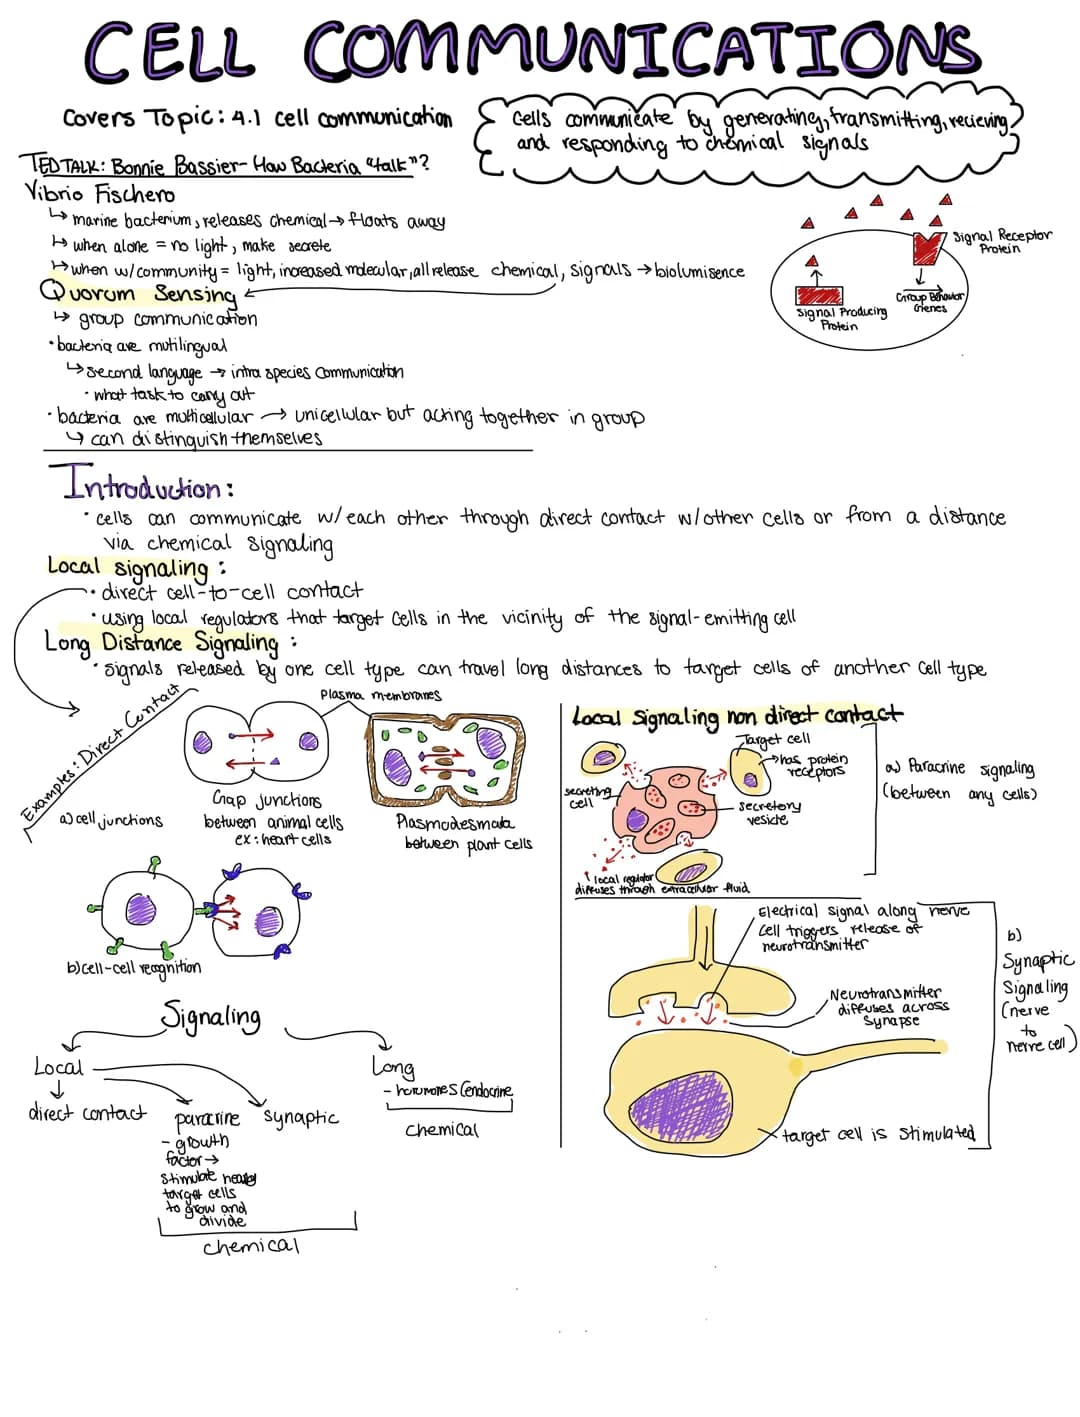 CELL COMMUNICATIONS
Covers Topic: 4.1 cell communication
Cells communicate by generating, transmitting, recieving
and responding to chemical signals
TEDTALK: Bonnie Bassier- How Bacteria "talk"?
Vibrio Fischero
↳ marine bacterium, releases chemical → floats away
↳ when alone = no light, make secrete
↳ when w/community = light, increased molecular, all release chemical, signals → biolumisence
Quorum Sensing
↳ group communication
• bacteria are mutilingual
↳ second language → intra species communication
• what task to carry out
• bacteria are multicellular → unicellular but acting together in group
↳ can distinguish themselves
Signal Receptor
Protein
Signal Producing
Protein
Group Behavior
Genes
Introduction:
• cells can communicate w/each other through direct contact w/other cells or from a distance
via chemical signaling
Local signaling:
• direct cell-to-cell contact
• using local regulators that target cells in the vicinity of the signal-emitting cell
Long Distance Signaling:
• signals released by one cell type can travel long distances to target cells of another cell type
Examples: Direct Contact
Plasma membranes
a) cell junctions
Gap junctions
between animal cells
ex: heart cells
Plasmodesmata
between plant cells
b) cell-cell recognition
Local signaling non direct contact
Target cell
→ has protein
receptors
secreting
cell
secretory
vesicle
↑ local regulator
diffuses through extracellular fluid
a) Paracrine signaling
(between any cells)
Electrical signal along nerve
cell triggers release of
neurotransmitter
Neurotransmitter
diffuses across
synapse
target cell is stimulated
b)
Synaptic
Signaling
(nerve
to
nerve cell)
Signaling
Local
direct contact
paracrine
- growth
factor →
stimulate nearby
target cells
to grow and
divide
synaptic
chemical
Long
- hormones (endocrine
chemical